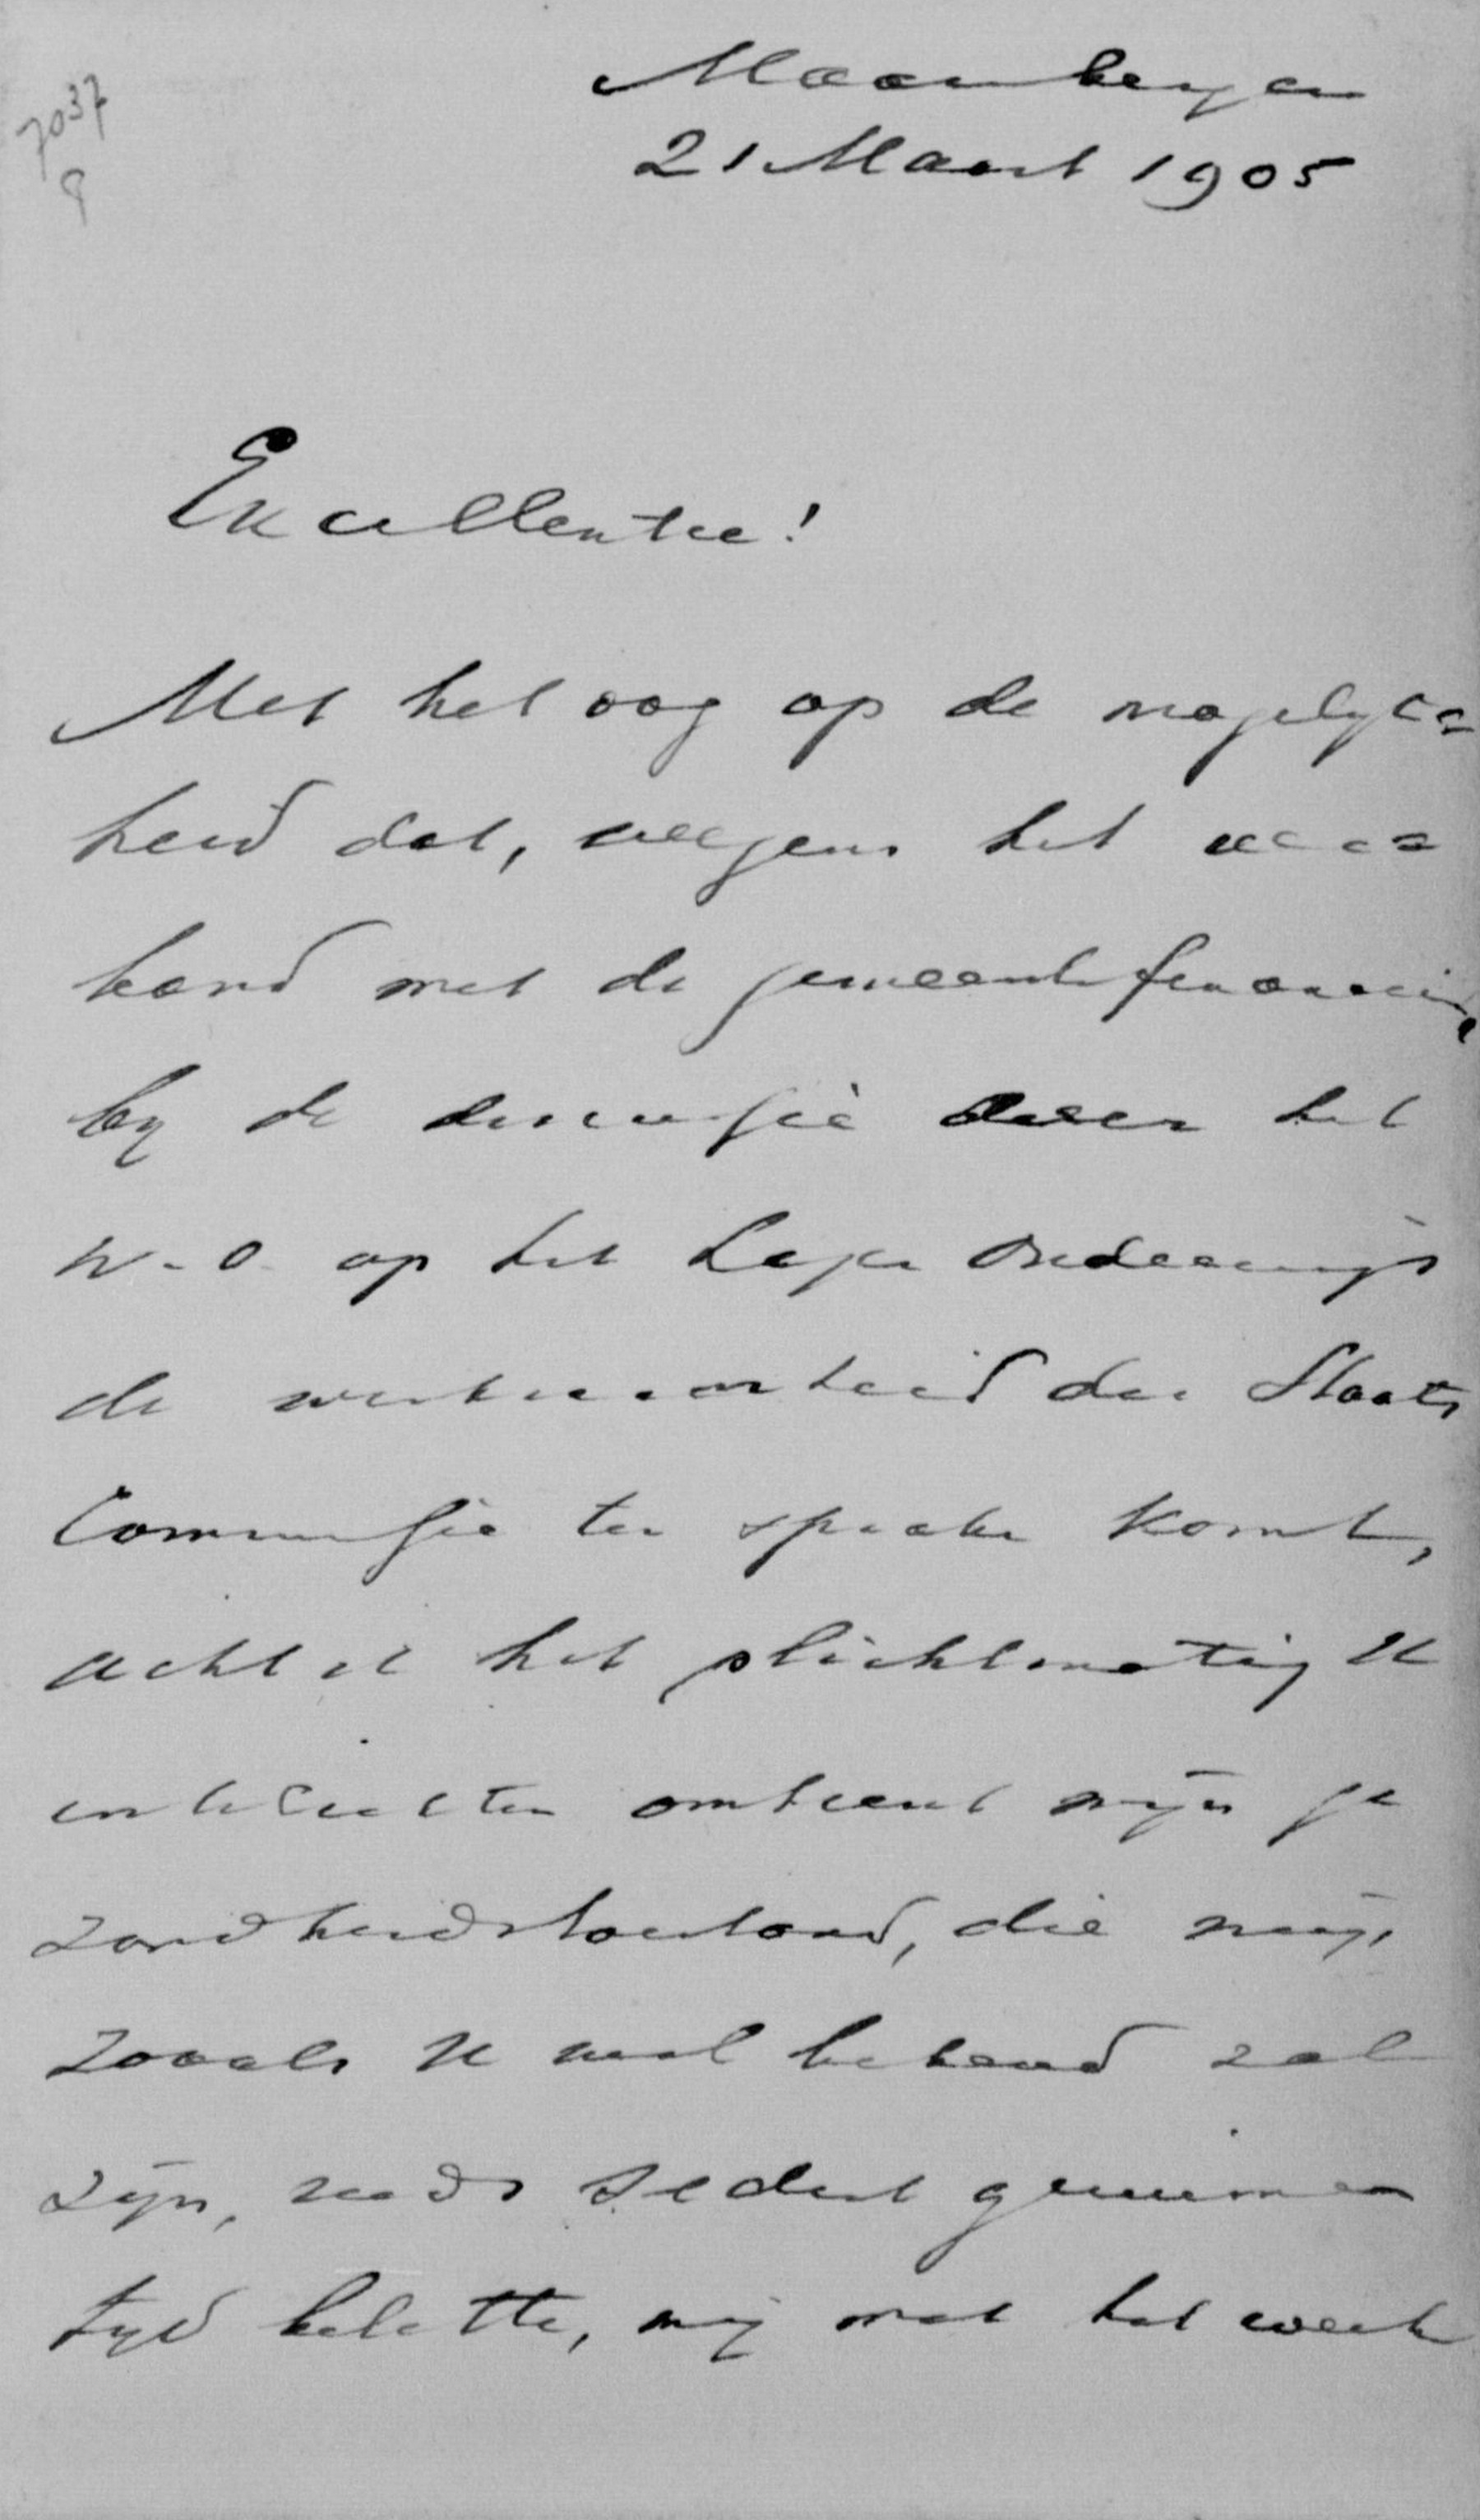 7037
8
Maarnbergen
21 Maart 1905
Excellentie!
Met het oog op de mogelijk=
heid dat, wegens het ver=
band met de gemeentefinanciën,
bij de discussie over het
W.O. op het Lager Onderwijs
de werkzaamheid der Staats
Commissie ter sprake komt,
acht ik het plichtmatig U
in te lichten omtrent mijn ge
zondheidstoestand, die mij,
zooals U wel bekend zal
zijn, reeds sedert geruimen
tijd belette, mij met het werk